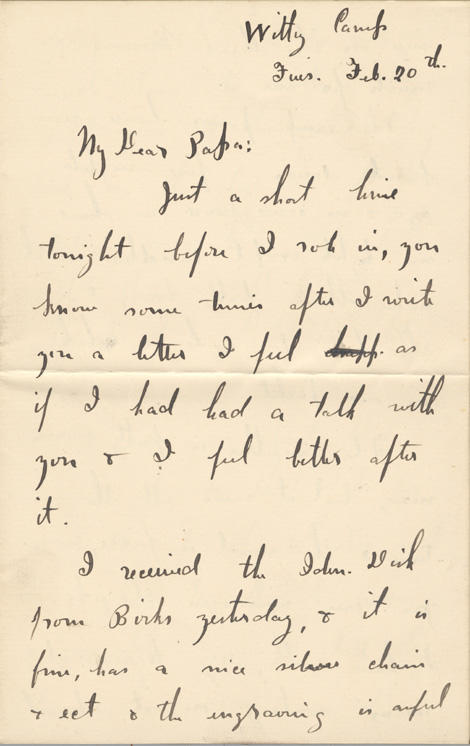 Witley Camp
Tues. Feb. 20th.
My Dear Papa:
Just a short line
tonight before I roll in, you
know some times after I write
you a letter I feel as
if I had had a talk with
you & I feel better after
it.
I received the Iden. Disk
from Birks yesterday, & it is
fine, has a nice silver chain
& ect & the engraving is awful